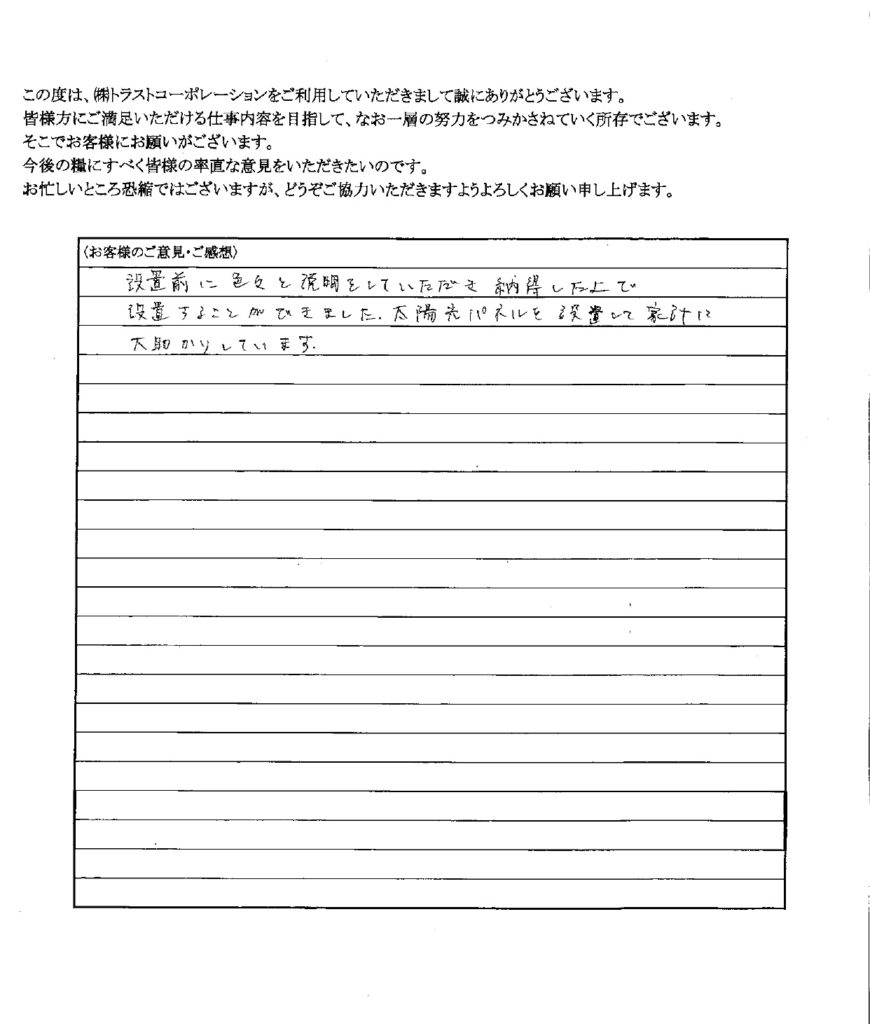 この度は、㈱トラストコーポレーションをご利用していただきまして誠にありがとうございます。
皆様方にご満足いただける仕事内容を目指して、なお一層の努力をつみかさねていく所存でございます。
そこでお客様にお願いがございます。
今後の糧にすべく皆様の率直な意見をいただきたいのです。
お忙しいところ恐縮ではございますが、どうぞご協力いただきますようよろしくお願い申し上げます。
〈お客様のご意見・ご感想〉
設置前に色々と説明をしていただき納得した上で
設置することができました。太陽光パネルを設置して家計に
大助かりしています。